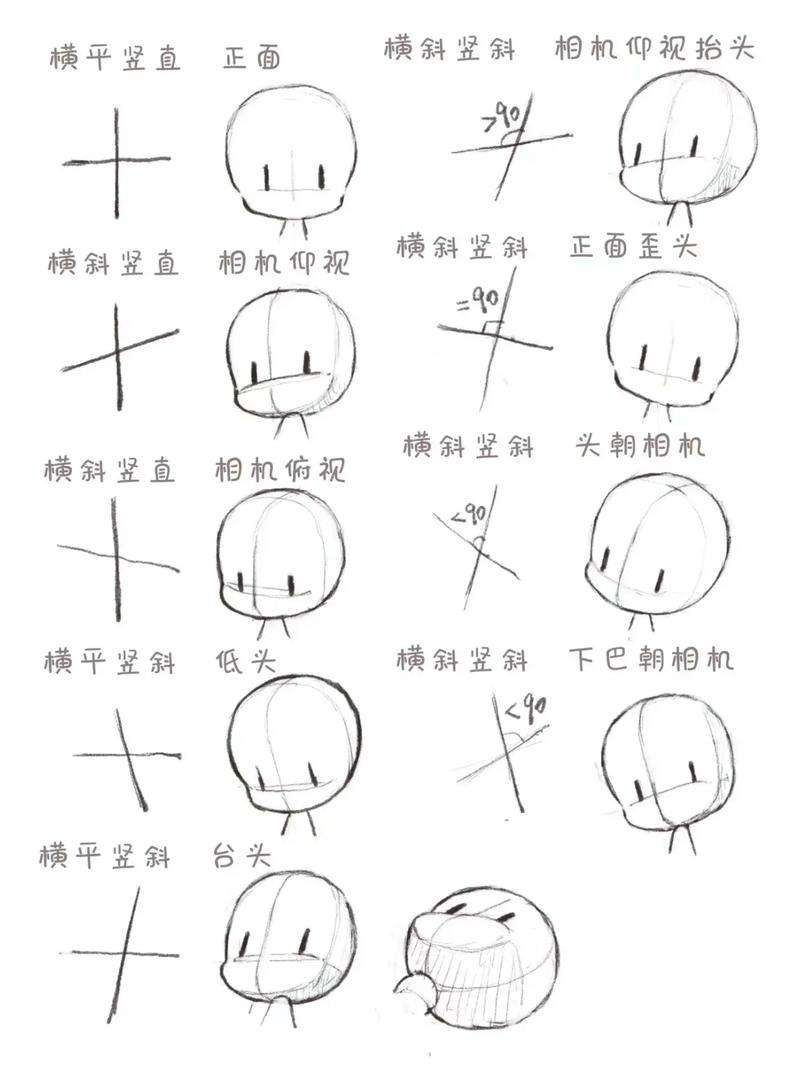 横平竖直 正面
横斜竖直 相机仰视
横斜竖直 相机俯视
横平竖斜 低头
横平竖斜 台头
横斜竖斜 相机仰视抬头
>90
横斜竖斜 正面歪头
=90
横斜竖斜 头朝相机
<90
横斜竖斜 下巴朝相机
<90